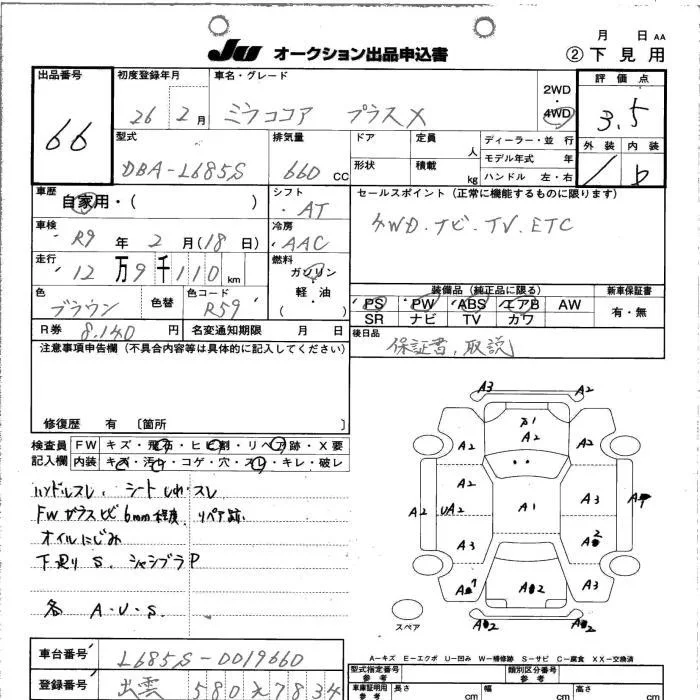 月 日 AA
JU オークション出品申込書 ②下見用
出品番号 初度登録年月 車名・グレード 2WD・4WD 評価点
66 26 2月 ミラココア プラスX 3.5
型式 排気量 ドア 定員 人 ディーラー・並行 外装 内装
DBA-L685S 660 CC 形状 積載 kg モデル年式 年
ハンドル 左・右 b
車歴 自家用・( ) シフト AT セールスポイント(正常に機能するものに限ります)
車検 R9年 2月(18日) 冷房 AAC 4WD.ナビ.TV.ETC
走行 12万9千110km 燃料 ガソリン・軽油 ( )
装備品(純正品に限る) 新車保証書
色 ブラウン 色替 色コード R59
PS PW ABS エアB AW 有・無
SR ナビ TV カワ
R券 8.140円 名変通知期限 月 日 後日品
保証書,取説
注意事項申告欄(不具合内容等は具体的に記入してください)
修復歴 有 [箇所 ]
検査員記入欄 FW キズ・飛石・ヒビ割・リペア跡・X要
内装 キズ・汚れ・コゲ・穴・スレ・キレ・破レ
ハンドルスレ. シートしわ・スレ
FWガラスヒビ6mm程度. リペア跡.
オイルにじみ
下廻りS. シャシブラP
各 A・U・S.
A3 A2
A2
A2 A2
A2 UA2 A1 A3
A3 A2
A2 A3
A2 A2
スペア
A-キズ E-エクボ U-凹み W-補修跡 S-サビ C-腐食 XX-交換済
車台番号 L685S-0019660
型式指定番号 参考 類別区分番号 参考
登録番号 出雲 580 え 7834
車庫証明用 参考 長さ cm 幅 cm 高さ cm